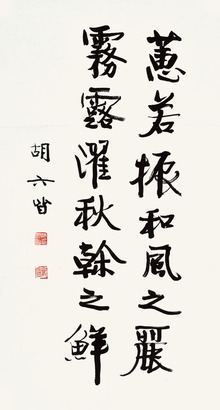 蕙若振和風之麗
霧露濯秋榦之鮮
胡六皆